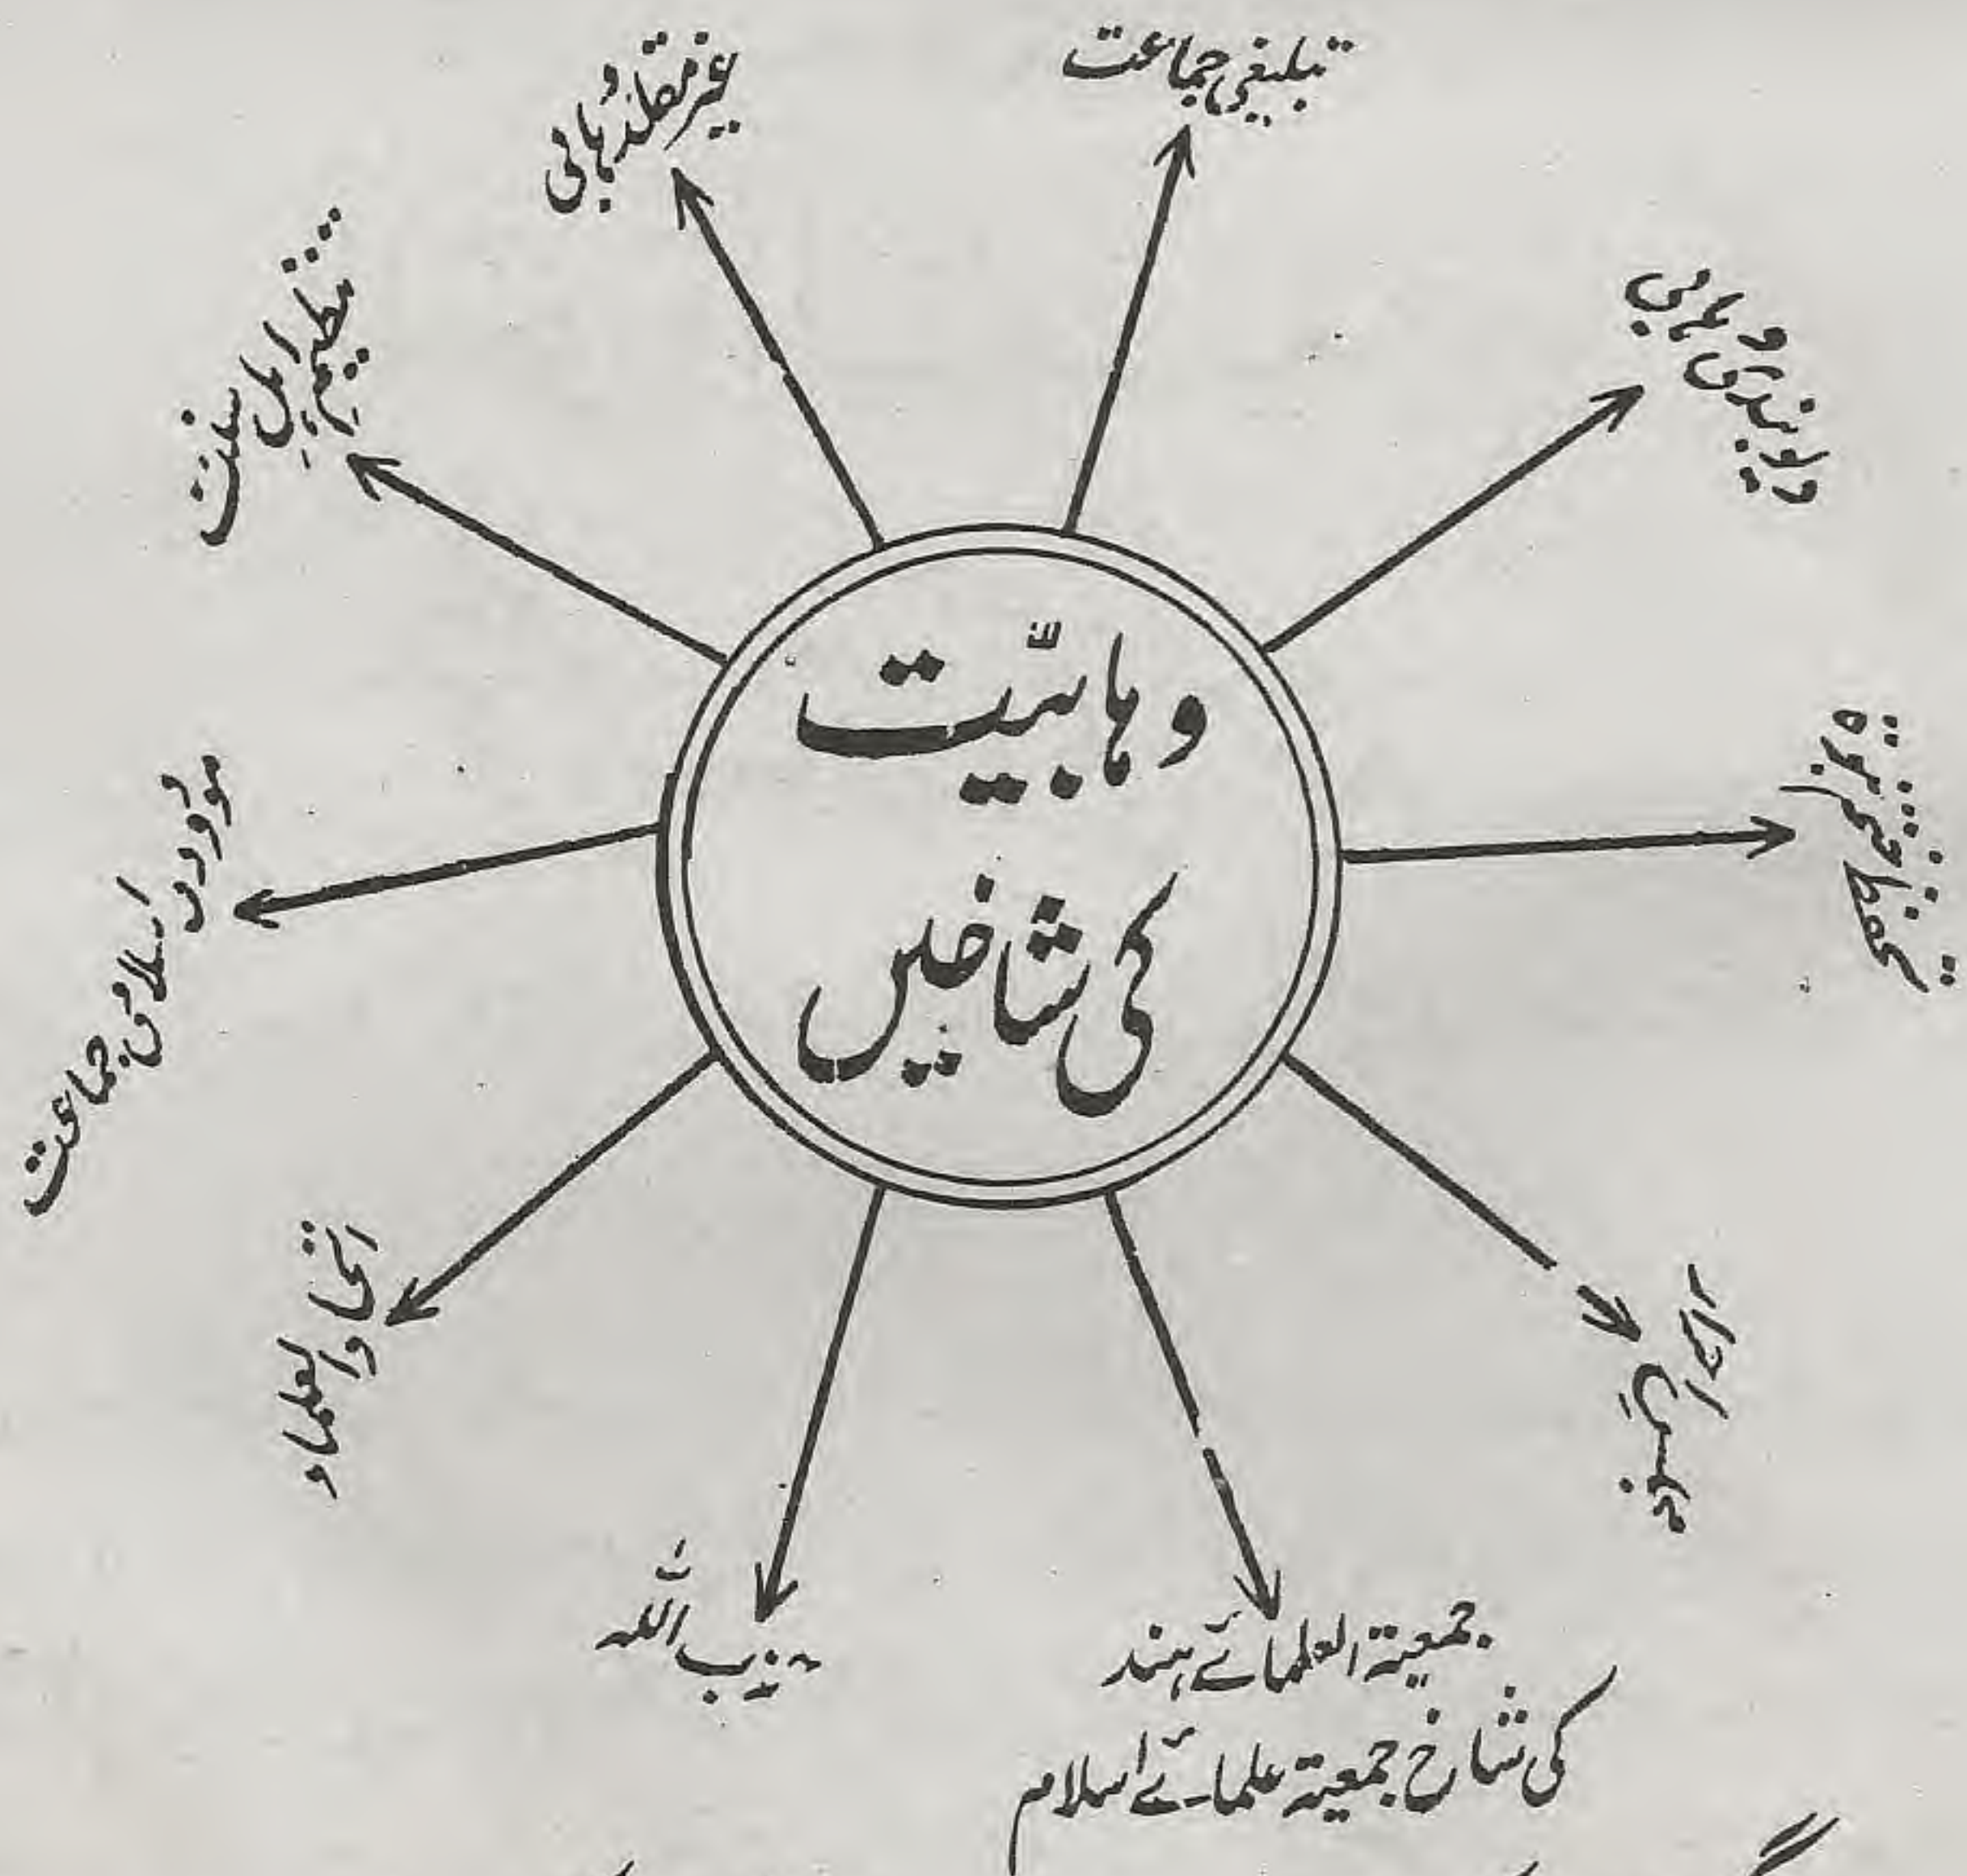 وہابیّت
کی شاخیں
تبلیغی جماعت
دیوبندی وہابی
جمعیۃ العلمائے ہند
کی شاخ جمعیۃ علمائے اسلام
حزب اللہ
اتحاد العلماء
مودودی اسلامی جماعت
تنظیمِ اہلِ سنت
غیر مقلد وہابی